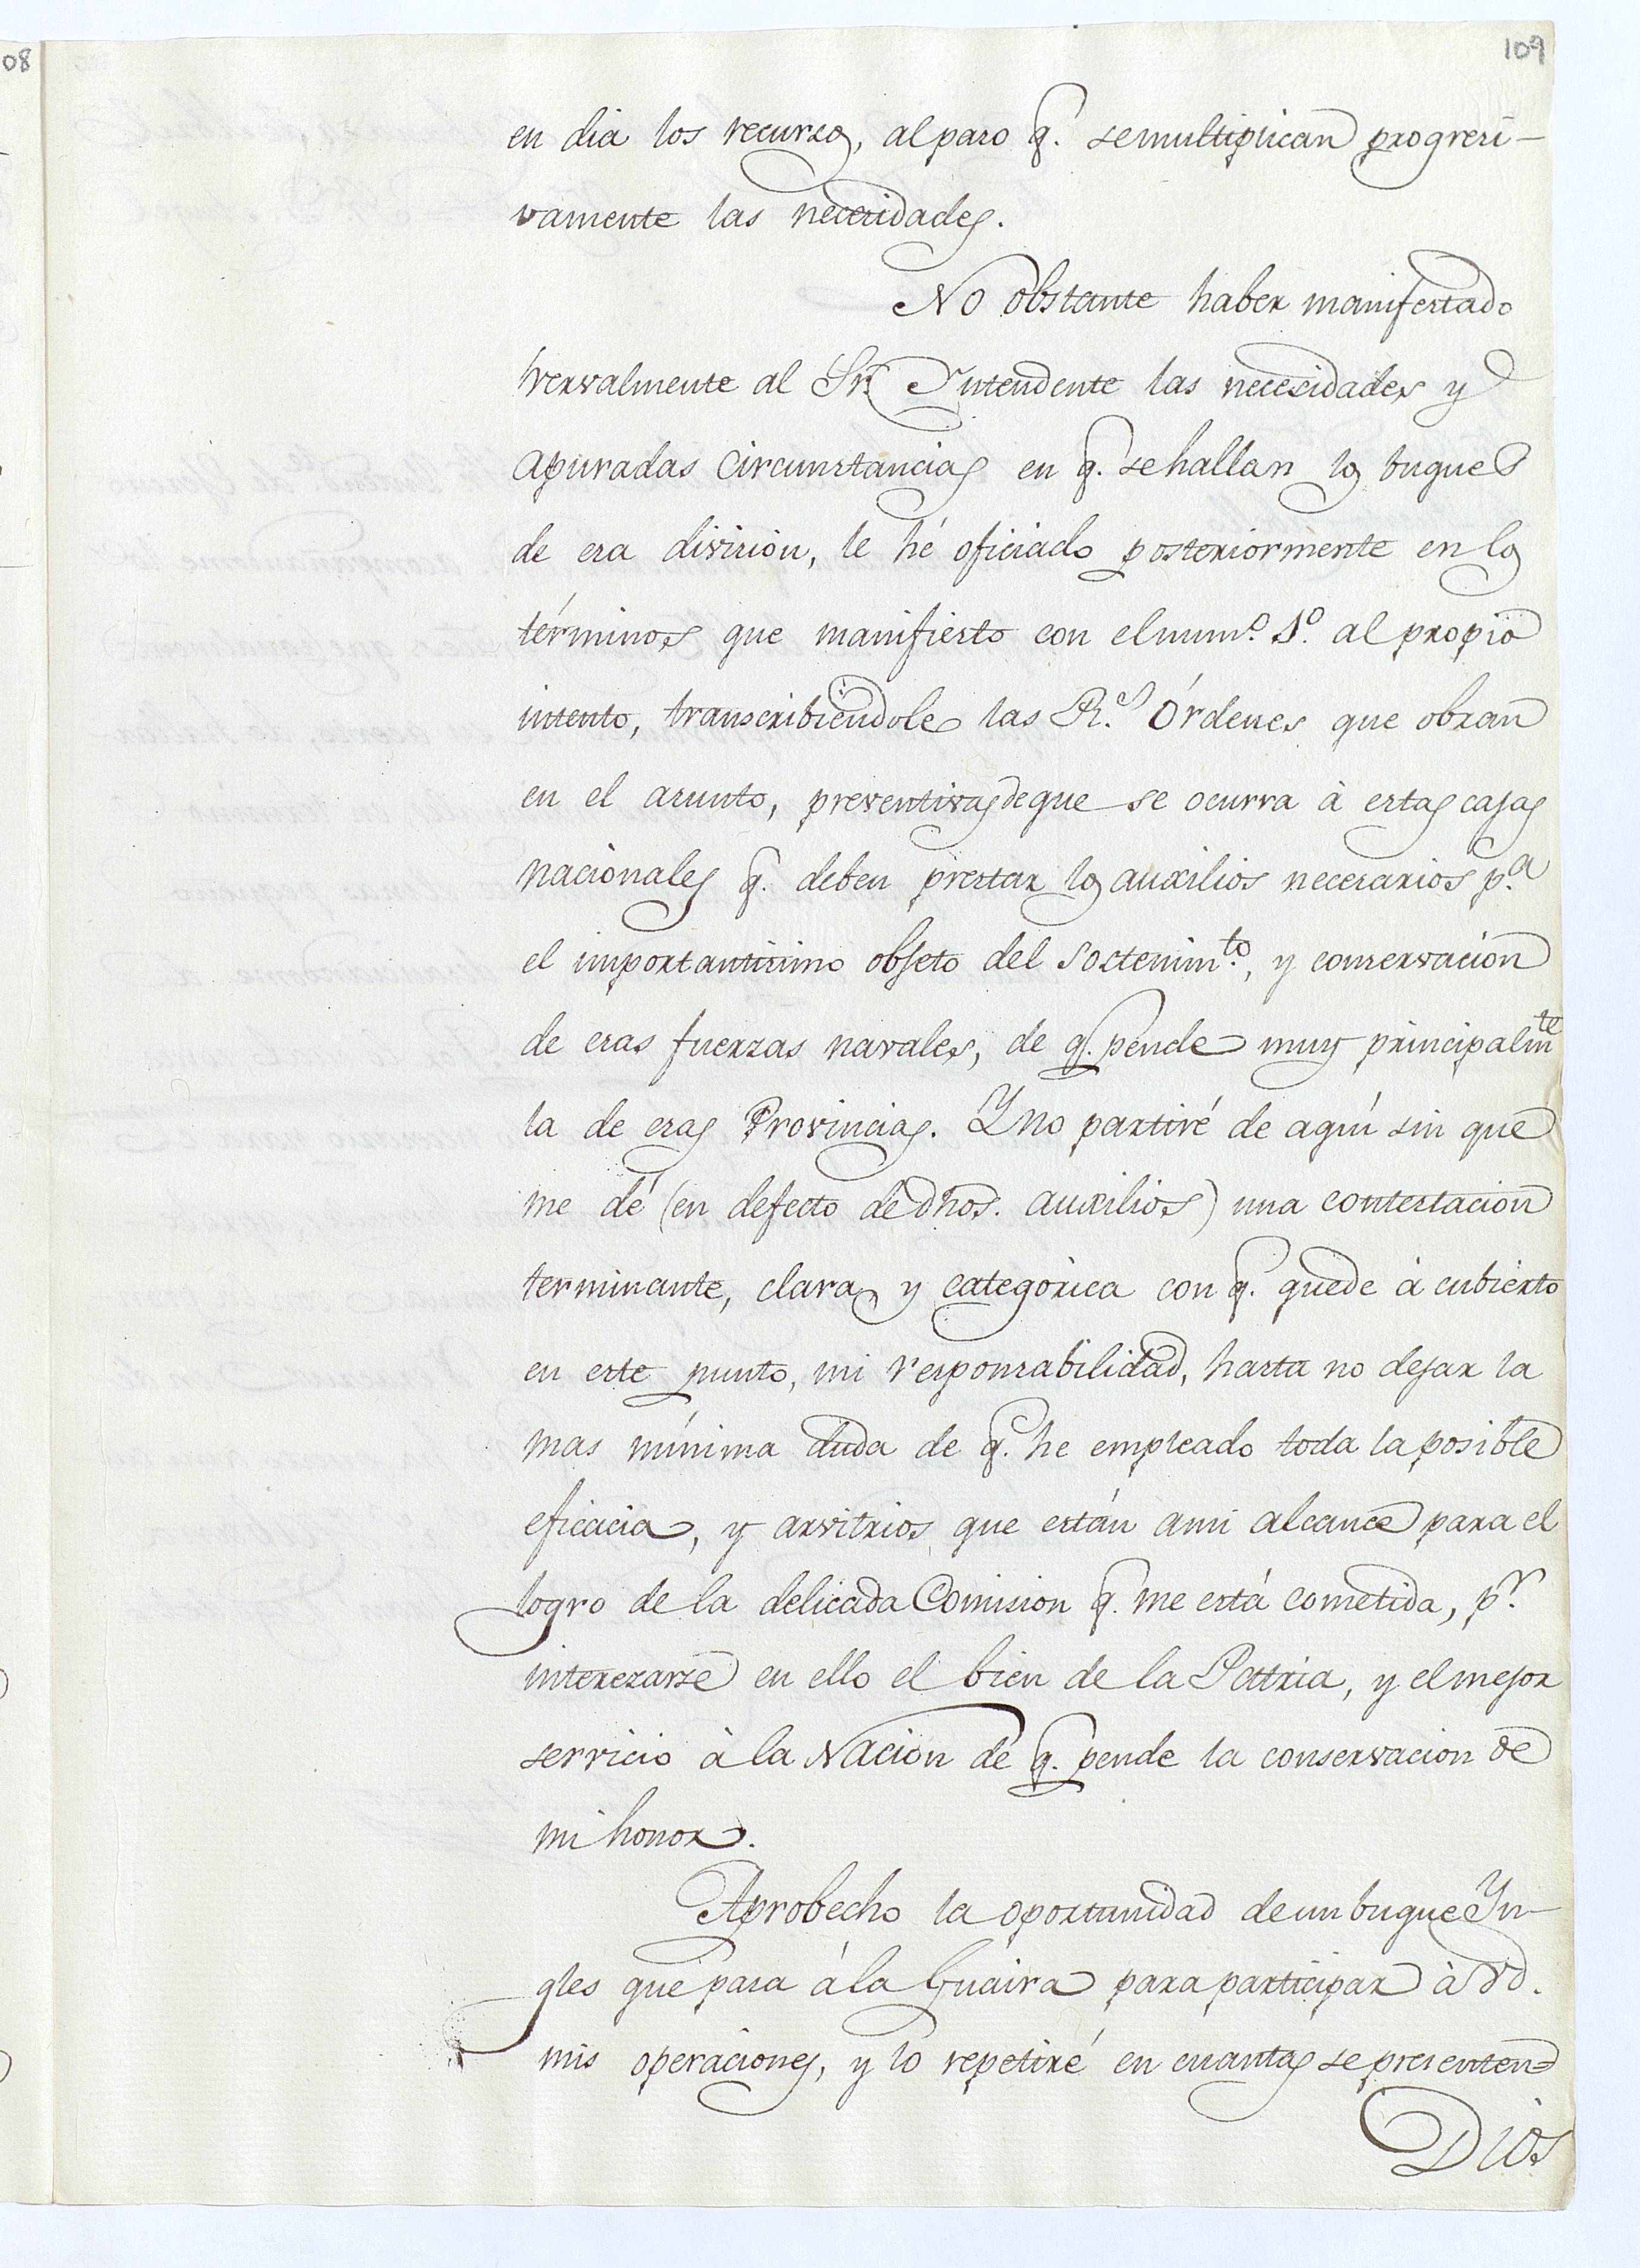 08
109
en dia los recursos, al paso q.e se multiplican progresi-
vamente las necesidades.
No obstante haber manifestado
vervalmente al Sr. Yntendente las necesidades y
apuradas circunstancias en q. se hallan los buques
de esa division, le hé oficiado posteriormente en los
términos que manifiesto con el num.o 1.o al propio
intento, transcribiéndole las R.s Órdenes que obran
en el asunto, preventivas de que se ocurra à estas cajas
nacionales q. deben prestar los auxilios necesarios p.a
el importantisimo objeto del sostenim.to, y conservacion
de esas fuerzas navales, de q. pende muy principalm.te
la de esas Provincias. Y no partiré de aquí sin que
me dé (en defecto de dhos. auxilios) una contestacion
terminante, clara y categórica con q. quede à cubierto
en este punto, mi responsabilidad, hasta no dejar la
mas mínima duda de q. he empleado toda la posible
eficacia, y arvitrios que están a mi alcance para el
logro de la delicada Comision q. me está cometida, p.r
interezarse en ello el bien de la Patria, y el mejor
servicio à la Nacion de q. pende la conservacion de
mi honor.
Aprobecho la oportunidad de un buque Yn-
gles que pasa á la Guaira para participar à Vd.
mis operaciones, y lo repetiré en cuantas se presenten=
Dios